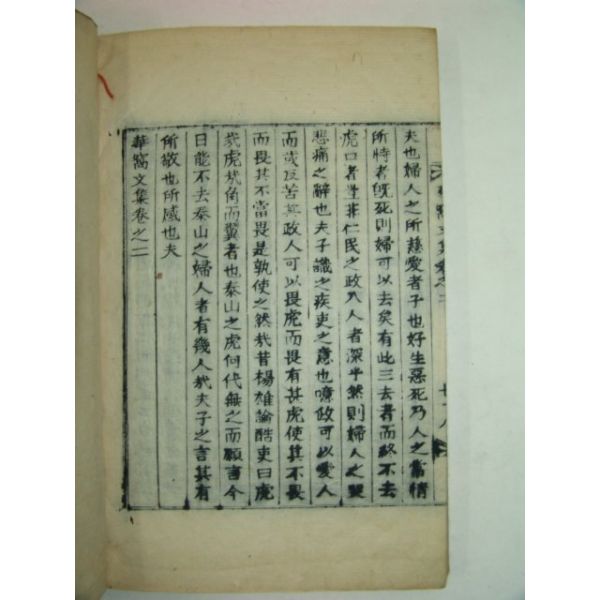 夫也婦人之所慈愛者子也好生惡死乃人之常情
所恃者旣死則婦可以去矣有此三去者而終不去
虎口者豈非仁民之政入人者深乎然則婦人之哭
悲痛之辭也夫子識之疾吏之意也噫政可以愛人
而或反苦其政人可以畏虎而畏有甚虎使其不畏
而畏其不當畏是孰使之然哉昔楊雄論酷吏曰虎
哉虎哉角而翼者也泰山之虎何代無之而願言今
日能不去泰山之婦人者有幾人哉夫子之言其有
所敬也所感也夫
華窩文集卷之二